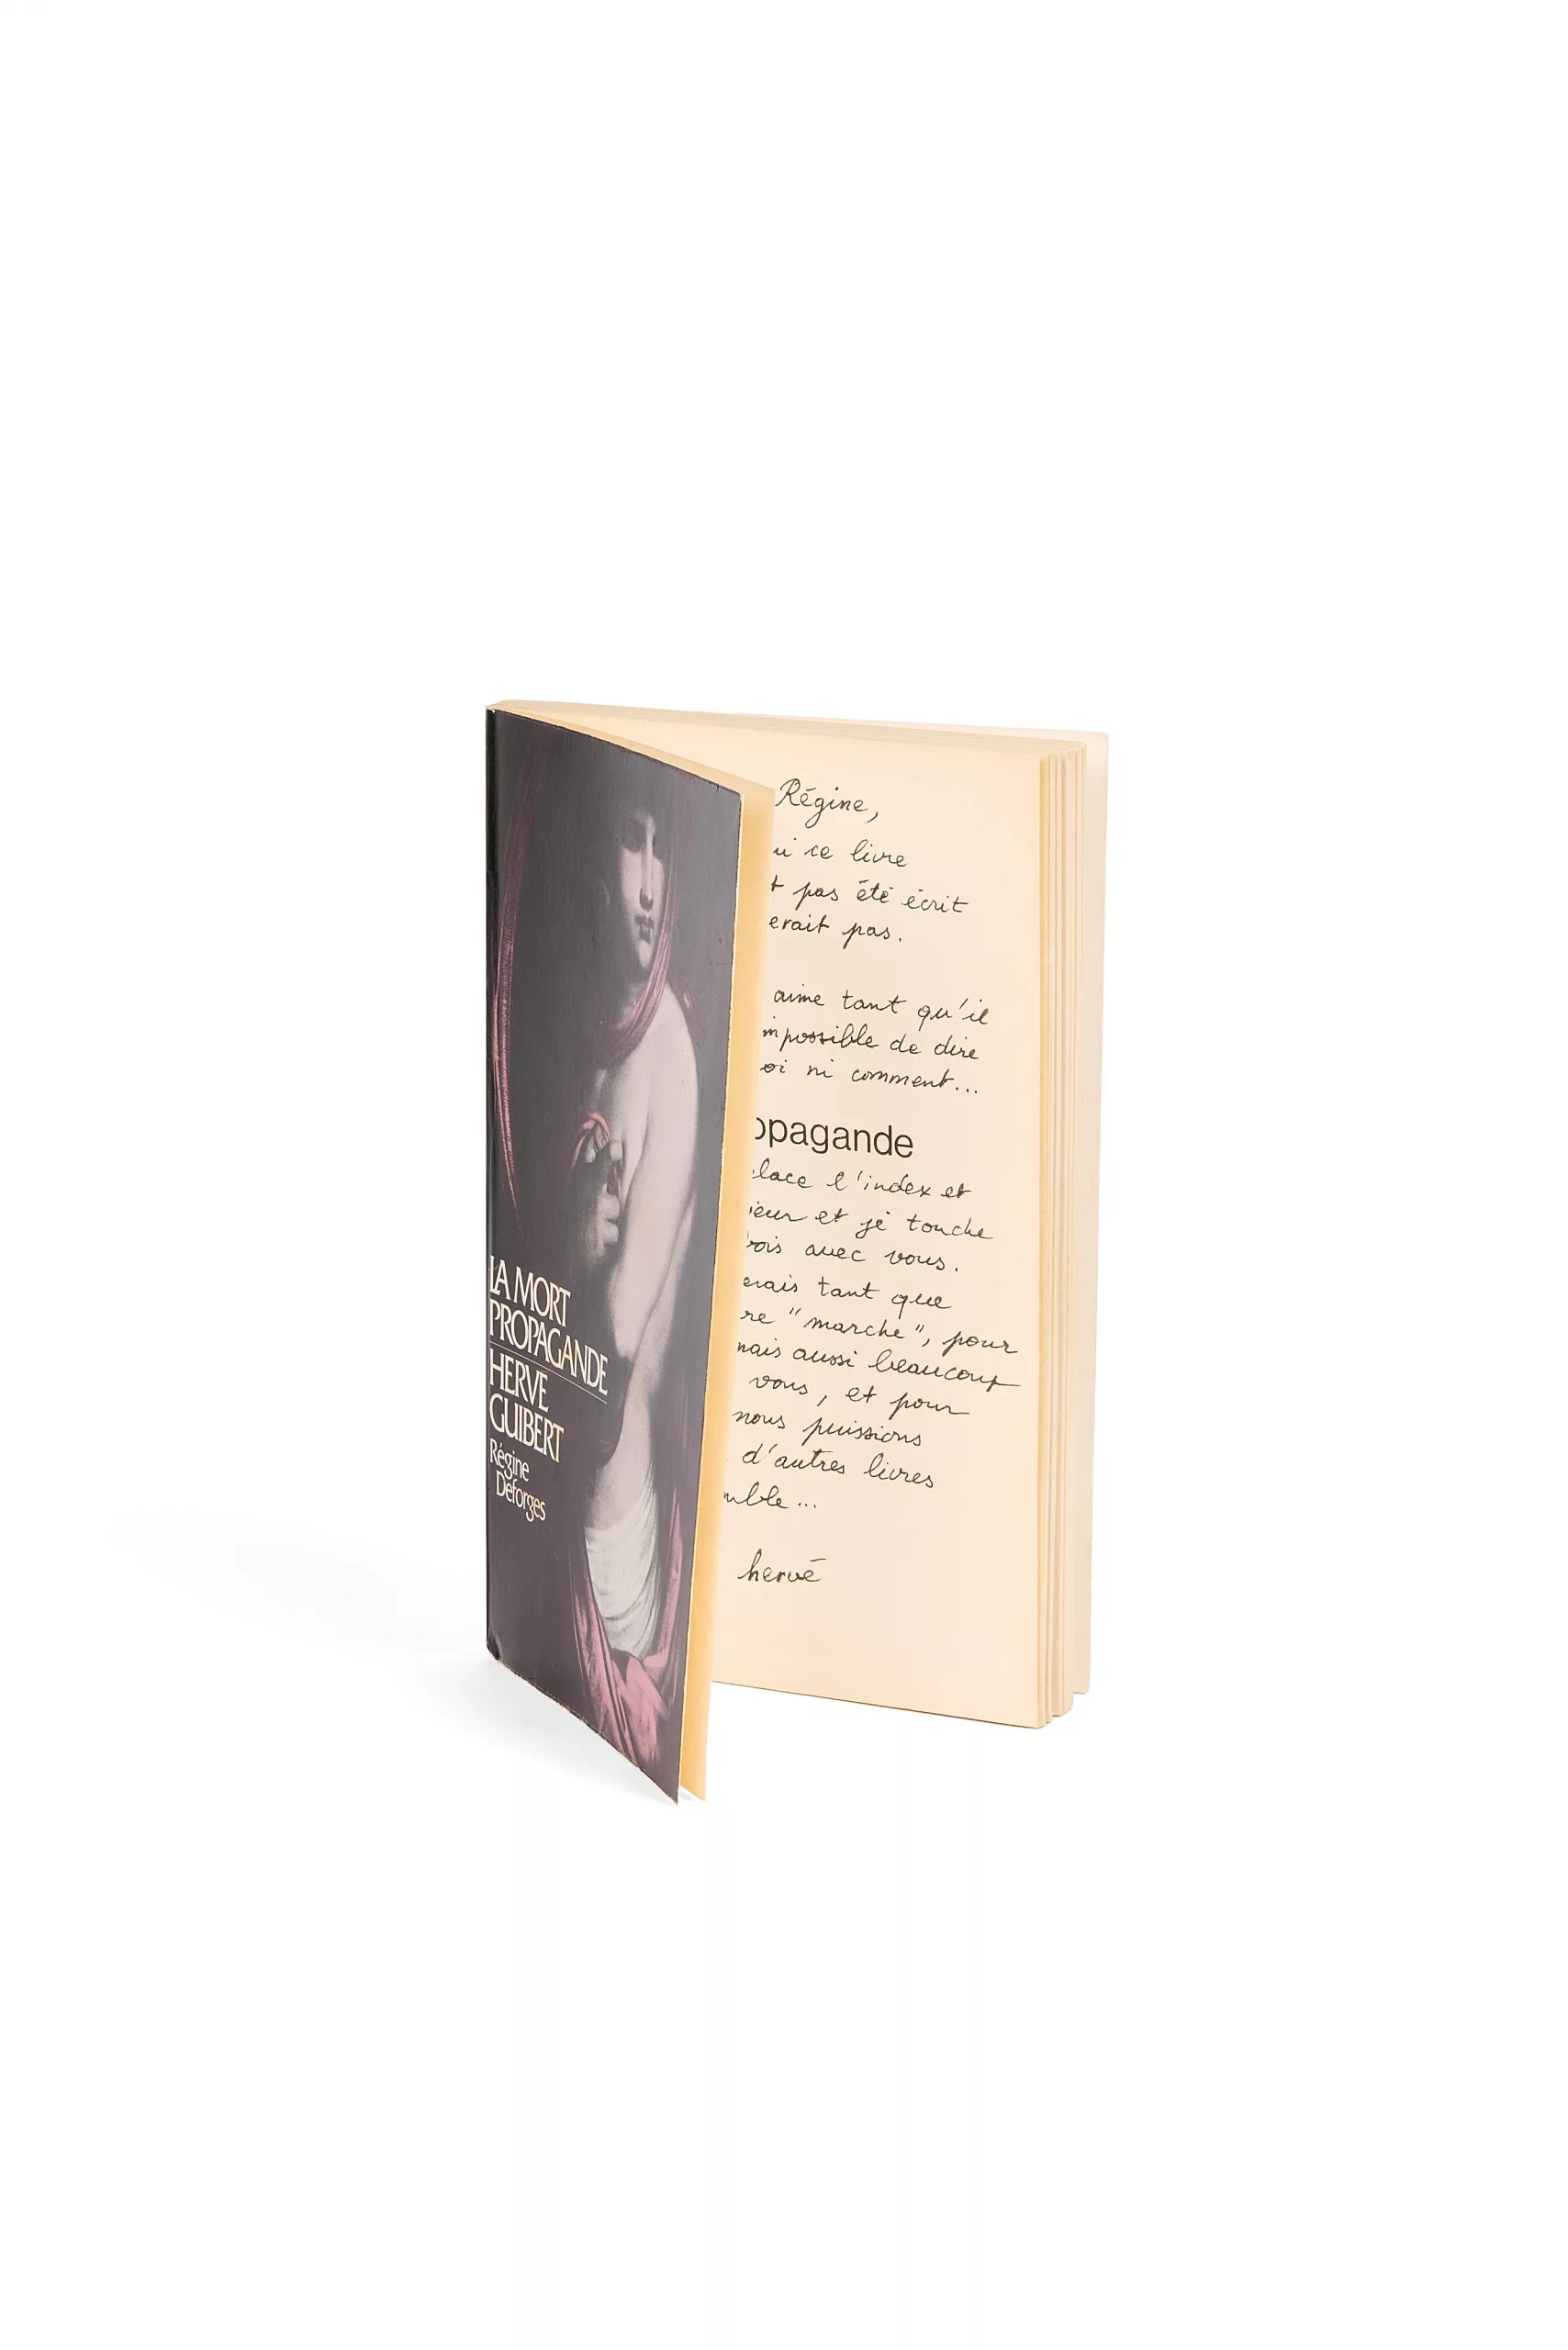 LA MORT
PROPAGANDE
HERVE
GUIBERT
Régine
Deforges
Régine,
ui ce livre
t pas été écrit
erait pas.
aime tant qu'il
impossible de dire
oi ni comment...
opagande
place l'index et
ieur et je touche
bois avec vous.
erais tant que
re "marche", pour
mais aussi beaucoup
vous, et pour
nous puissions
d'autres livres
mble...
hervé